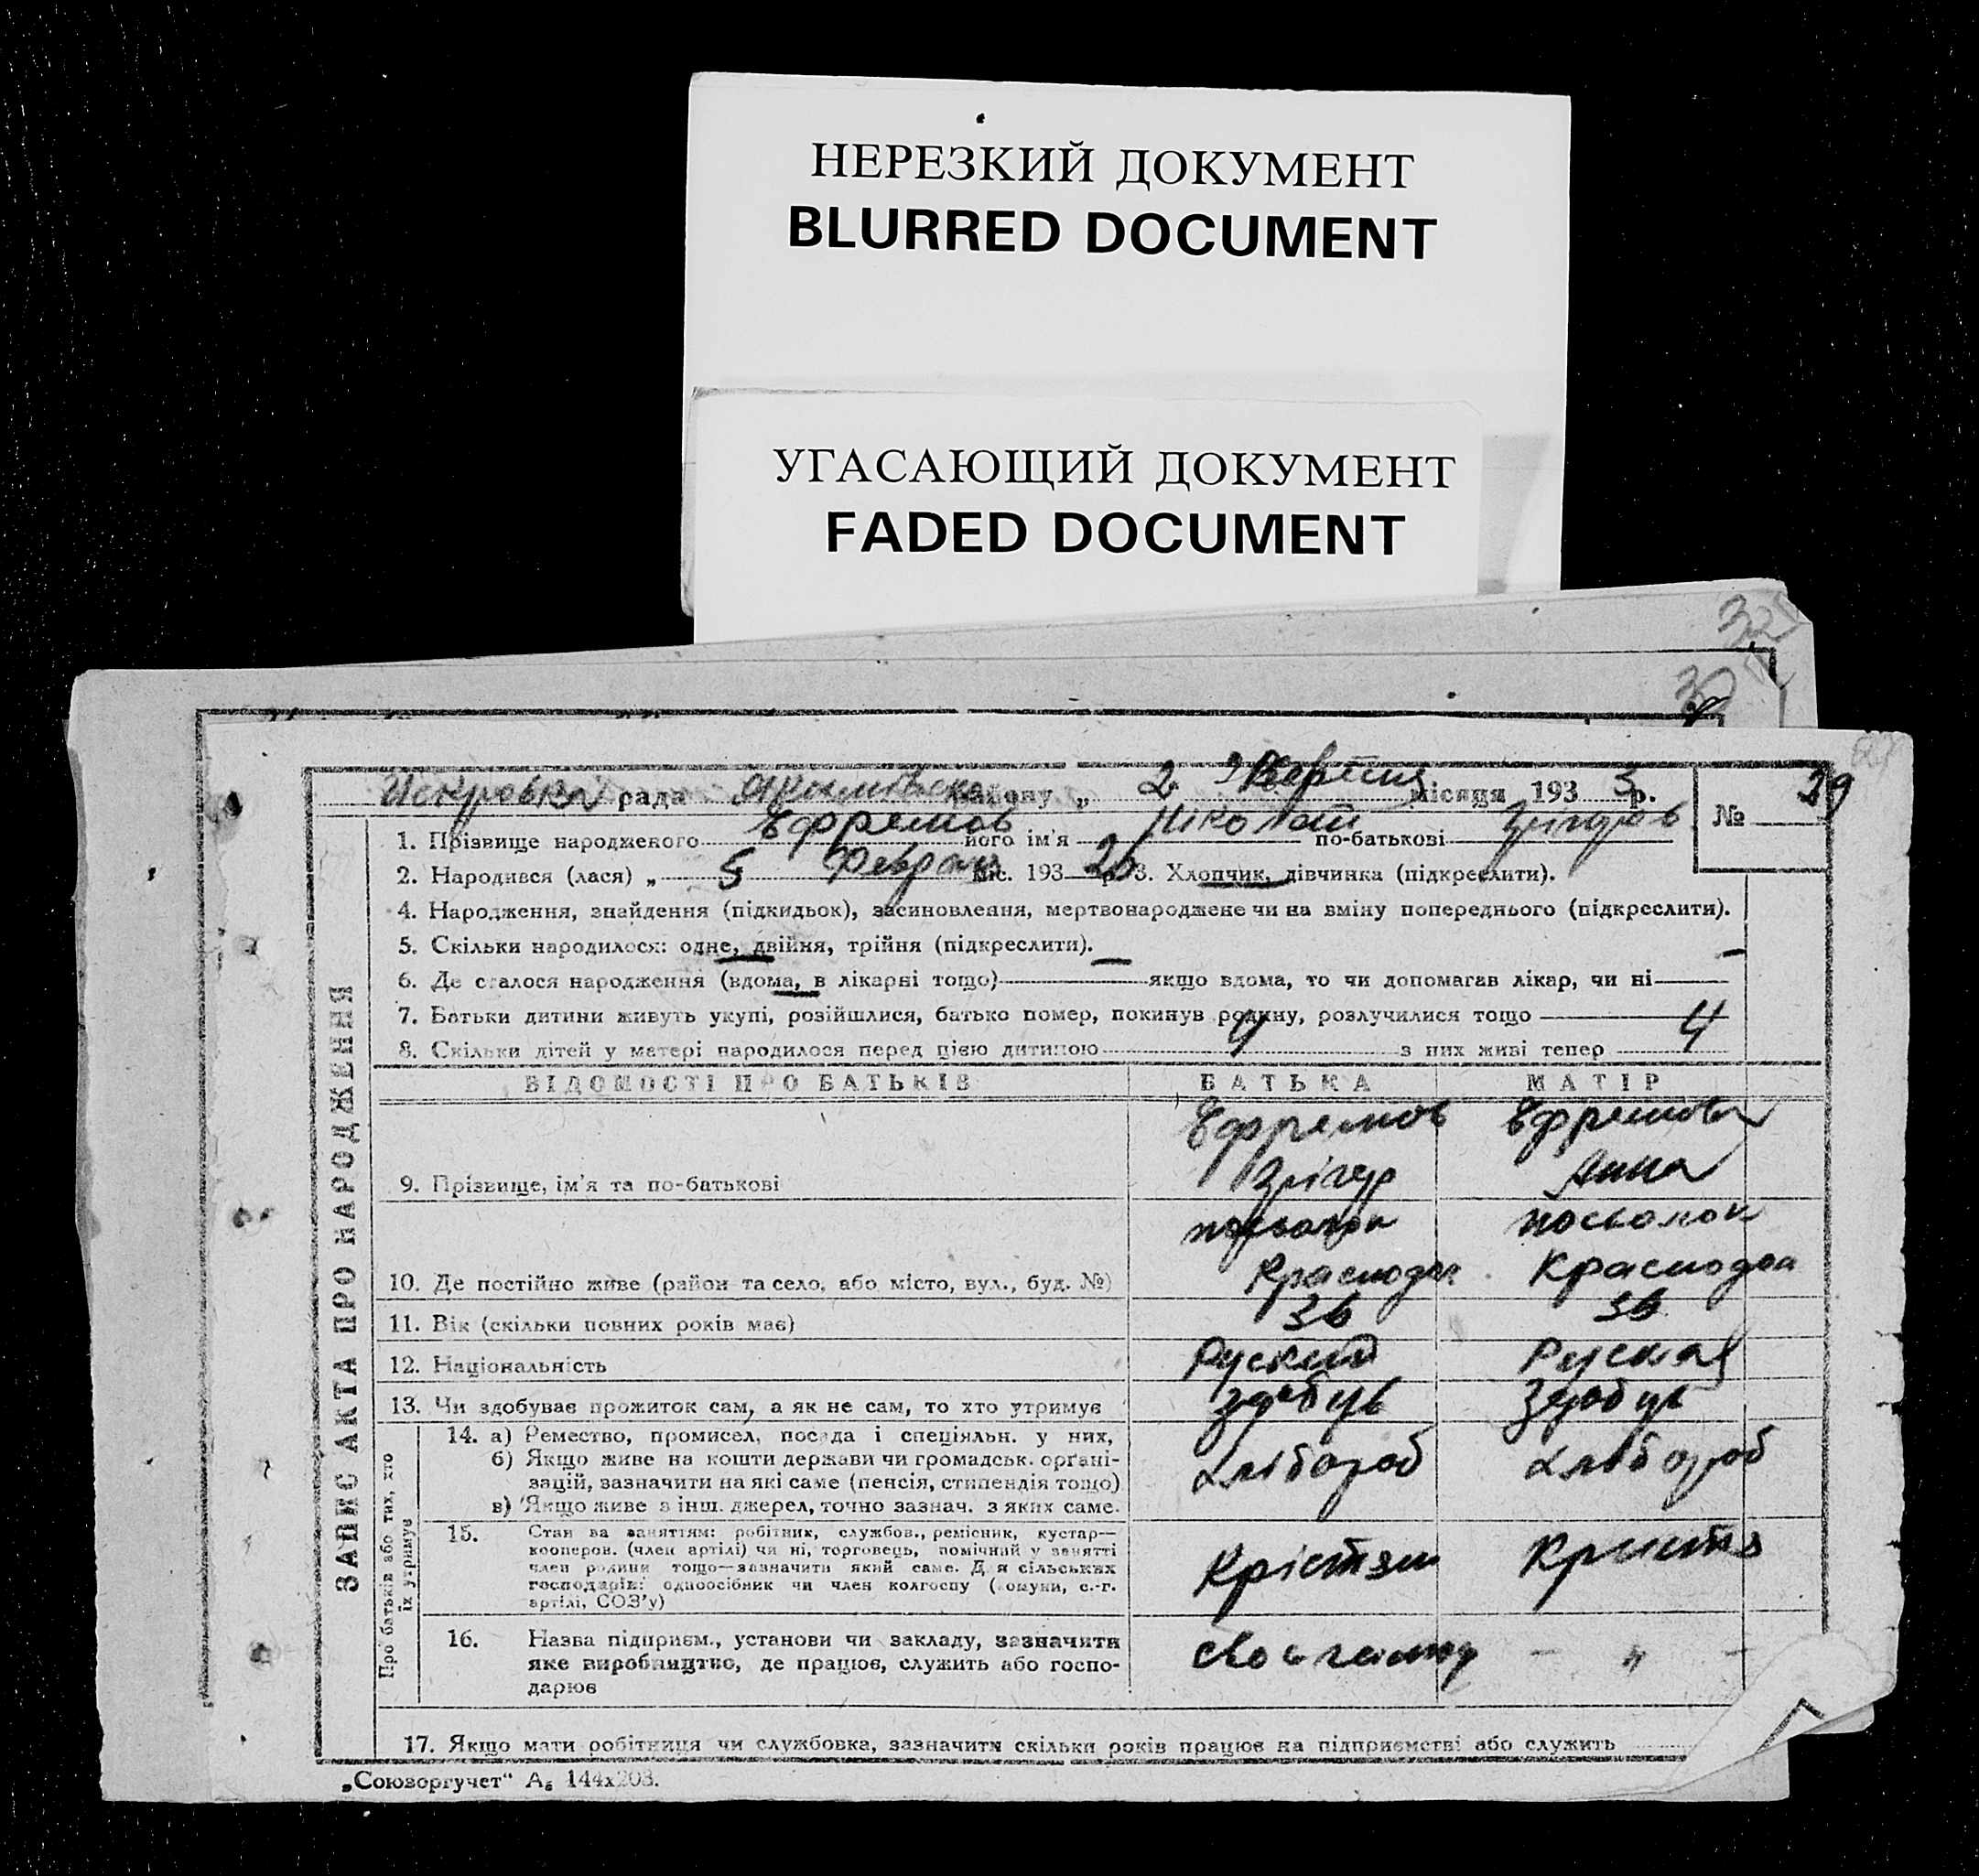 НЕРЕЗКИЙ ДОКУМЕНТ
BLURRED DOCUMENT
УГАСАЮЩИЙ ДОКУМЕНТ
FADED DOCUMENT
32
рада району „ 2 місяця 1933 р.
№ 29
1. Прізвище народженого Ефремов його ім'я Ніколай по-батькові
2. Народився (лася) „ 5 Февраля міс. 193 р. 3. Хлопчик, дівчинка (підкреслити).
4. Народження, знайдення (підкидьок), засиновлення, мертвонароджене чи на зміну попереднього (підкреслити).
5. Скільки народилося: одне, двійня, трійня (підкреслити).
6. Де сталося народження (вдома, в лікарні тощо) — якщо вдома, то чи допомагав лікар, чи ні —
7. Батьки дитини живуть укупі, розійшлися, батько помер, покинув родину, розлучилися тощо
8. Скільки дітей у матері народилося перед цією дитиною 4 з них живі тепер 4
ВІДОМОСТІ ПРО БАТЬКІВ БАТЬКА МАТІР
Ефремов Ефремова
9. Прізвище, ім'я та по-батькові Грігор Анна
посьолок посьолок
10. Де постійно живе (район та село, або місто, вул., буд. №) Краснодон Краснодон
11. Вік (скільки повних років має) 36 36
12. Національність Руский Руская
13. Чи здобуває прожиток сам, а як не сам, то хто утримує здобуць здобуць
14. а) Ремество, промисел, посада і спеціяльн. у них,
б) Якщо живе на кошти держави чи громадськ. орґані-
зацій, зазначити на які саме (пенсія, стипендія тощо) хлібороб хлібороб
в) Якщо живе з інш. джерел, точно зазнач. з яких саме.
15. Стан за заняттям: робітник, службов., ремісник, кустар—
кооперов. (член артілі) чи ні, торговець, помічний у занятті
член родини тощо—зазначити який саме. Для сільських
господарів: одноосібник чи член колгоспу (комуни, с.-г.
артілі, СОЗ'у)
16. Назва підприєм., установи чи закладу, зазначити
яке виробництво, де працює, служить або госпо- — „ —
дарює
17. Якщо мати робітниця чи службовка, зазначити скільки років працює на підприємстві або служить
ЗАПИС АКТА ПРО НАРОДЖЕННЯ
Про батьків або тих, хто
їх утримує
„Союзоргучет“ А₆ 144х203.